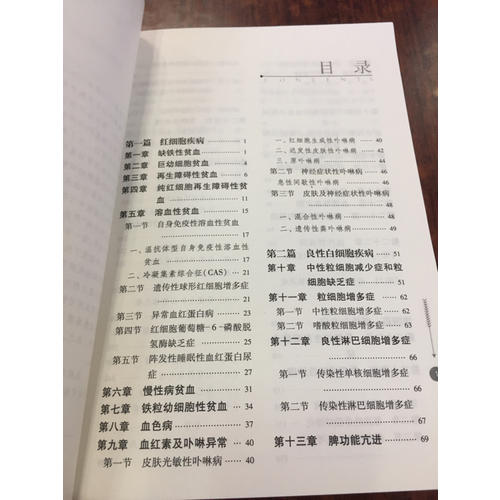 目录
CONTENTS
第一篇 红细胞疾病 1
第一章 缺铁性贫血 1
第二章 巨幼细胞贫血 4
第三章 再生障碍性贫血 6
第四章 纯红细胞再生障碍性贫
血 11
第五章 溶血性贫血 15
第一节 自身免疫性溶血性贫血
17
一、温抗体型自身免疫性溶血性
贫血 17
二、冷凝集素综合征(CAS) 21
第二节 遗传性球形红细胞增多症
21
第三节 异常血红蛋白病 23
第四节 红细胞葡萄糖-6-磷酸脱
氢酶缺乏症 25
第五节 阵发性睡眠性血红蛋白尿
症 27
第六章 慢性病贫血 31
第七章 铁粒幼细胞性贫血 34
第八章 血色病 37
第九章 血红素及卟啉异常 40
第一节 皮肤光敏性卟啉病 40
一、红细胞生成性卟啉病 40
二、迟发性皮肤性卟啉病 44
三、原卟啉病 46
第二节 神经症状性卟啉病
急性间歇性卟啉病 46
第三节 皮肤及神经症状性卟啉病
48
一、混合性卟啉病 48
二、遗传性粪卟啉病 49
第二篇 良性白细胞疾病 51
第十章 中性粒细胞减少症和粒
细胞缺乏症 51
第十一章 粒细胞增多症 62
第一节 中性粒细胞增多症 62
第二节 嗜酸粒细胞增多症 63
第十二章 良性淋巴细胞增多症
66
第一节 传染性单核细胞增多症
66
第二节 传染性淋巴细胞增多症
67
第十三章 脾功能亢进 69